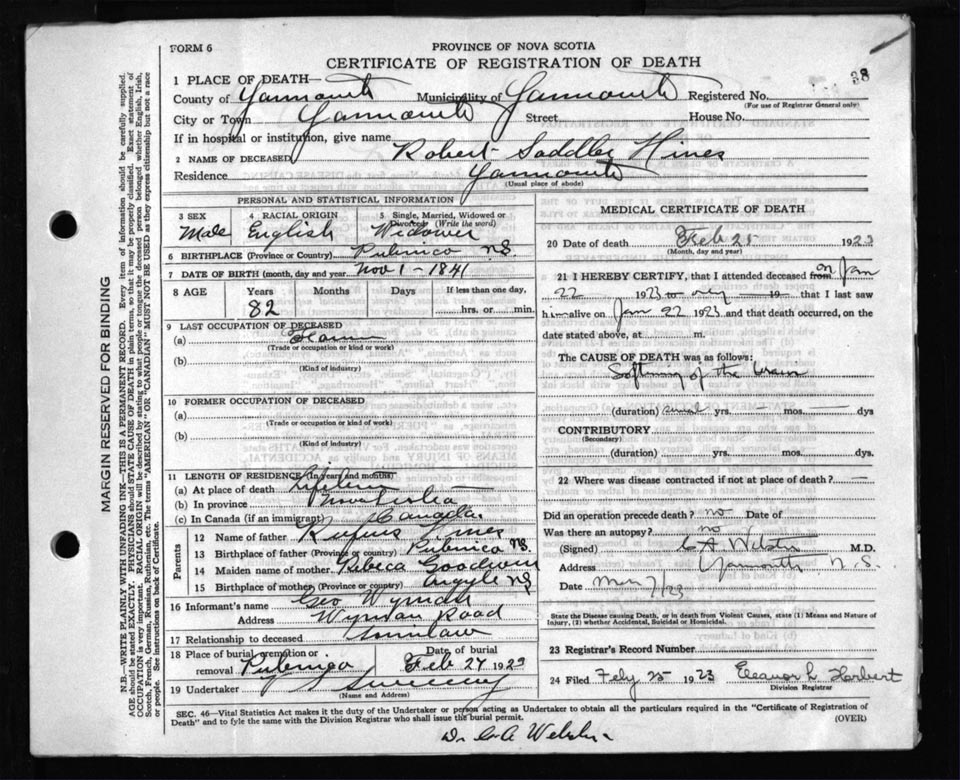 FORM 6
PROVINCE OF NOVA SCOTIA
CERTIFICATE OF REGISTRATION OF DEATH
38
1 PLACE OF DEATH—
County of Yarmouth Municipality of Yarmouth Registered No.
(For use of Registrar General only)
City or Town Yarmouth Street House No.
If in hospital or institution, give name
2 NAME OF DECEASED Robert Saddler Hines
Residence Yarmouth
(Usual place of abode)
PERSONAL AND STATISTICAL INFORMATION
3 SEX 4 RACIAL ORIGIN 5 Single, Married, Widowed or Divorced (Write the word)
Male English Widower
6 BIRTHPLACE (Province or Country) Pubnico N.S.
7 DATE OF BIRTH (month, day and year) Nov 1 - 1841
8 AGE Years Months Days If less than one day,
82 hrs. or min.
9 LAST OCCUPATION OF DECEASED
(a)
(Trade or occupation or kind or work)
(b)
(Kind of industry)
10 FORMER OCCUPATION OF DECEASED
(a)
(Trade or occupation or kind of work)
(b)
(Kind of industry)
11 LENGTH OF RESIDENCE (In years and months)
(a) At place of death Lifetime
(b) In province Nova Scotia
(c) In Canada (if an immigrant) Canada
Parents
12 Name of father Rufus Hines
13 Birthplace of father (Province or country) Pubnico N.S.
14 Maiden name of mother Rebeca Goodwin
15 Birthplace of mother (Province or country) Argyle N.S
16 Informant's name Geo Wyman
Address Wyman Road
17 Relationship to deceased Soninlaw
18 Place of burial, cremation or removal Pubnico Date of burial Feb 27 1923
19 Undertaker Sweeny
(Name and Address)
MEDICAL CERTIFICATE OF DEATH
20 Date of death Feb 25 1923
(Month, day and year)
21 I HEREBY CERTIFY, that I attended deceased from on Jan
22 1923 to only 19 that I last saw
him alive on Jan 22 1923 and that death occurred, on the
date stated above, at m.
The CAUSE OF DEATH was as follows:
Softning of the brain
(duration) several yrs. — mos. — dys
CONTRIBUTORY
(Secondary)
(duration) yrs. mos. dys.
22 Where was disease contracted if not at place of death? —
Did an operation precede death? no Date of
Was there an autopsy? no
(Signed) C A Webster M.D.
Address Yarmouth, N.S.
Date Mar 7/23
State the Disease causing Death, or in death from Violent Causes, state (1) Means and Nature of
Injury, (2) whether Accidental, Suicidal or Homicidal.
23 Registrar's Record Number
24 Filed Feby 25 1923 Eleanor L Herbert
Division Registrar
SEC. 46—Vital Statistics Act makes it the duty of the Undertaker or person acting as Undertaker to obtain all the particulars required in the "Certificate of Registration of
Death" and to fyle the same with the Division Registrar who shall issue the burial permit. (OVER)
Dr C A Webster
MARGIN RESERVED FOR BINDING
N.B.—WRITE PLAINLY WITH UNFADING INK—THIS IS A PERMANENT RECORD. Every item of information should be carefully supplied.
AGE should be stated EXACTLY. PHYSICIANS should STATE CAUSE OF DEATH in plain terms, so that it may be properly classified. Exact statement of
OCCUPATION is very important. RACIAL ORIGIN will be described by stating to what people or tongue the deceased person belonged whether English, Irish,
Scotch, French, German, Russian, Ruthenian, etc. The terms "AMERICAN" OR "CANADIAN" MUST NOT BE USED as they express citizenship but not a race
or people. See instructions on back of Certificate.